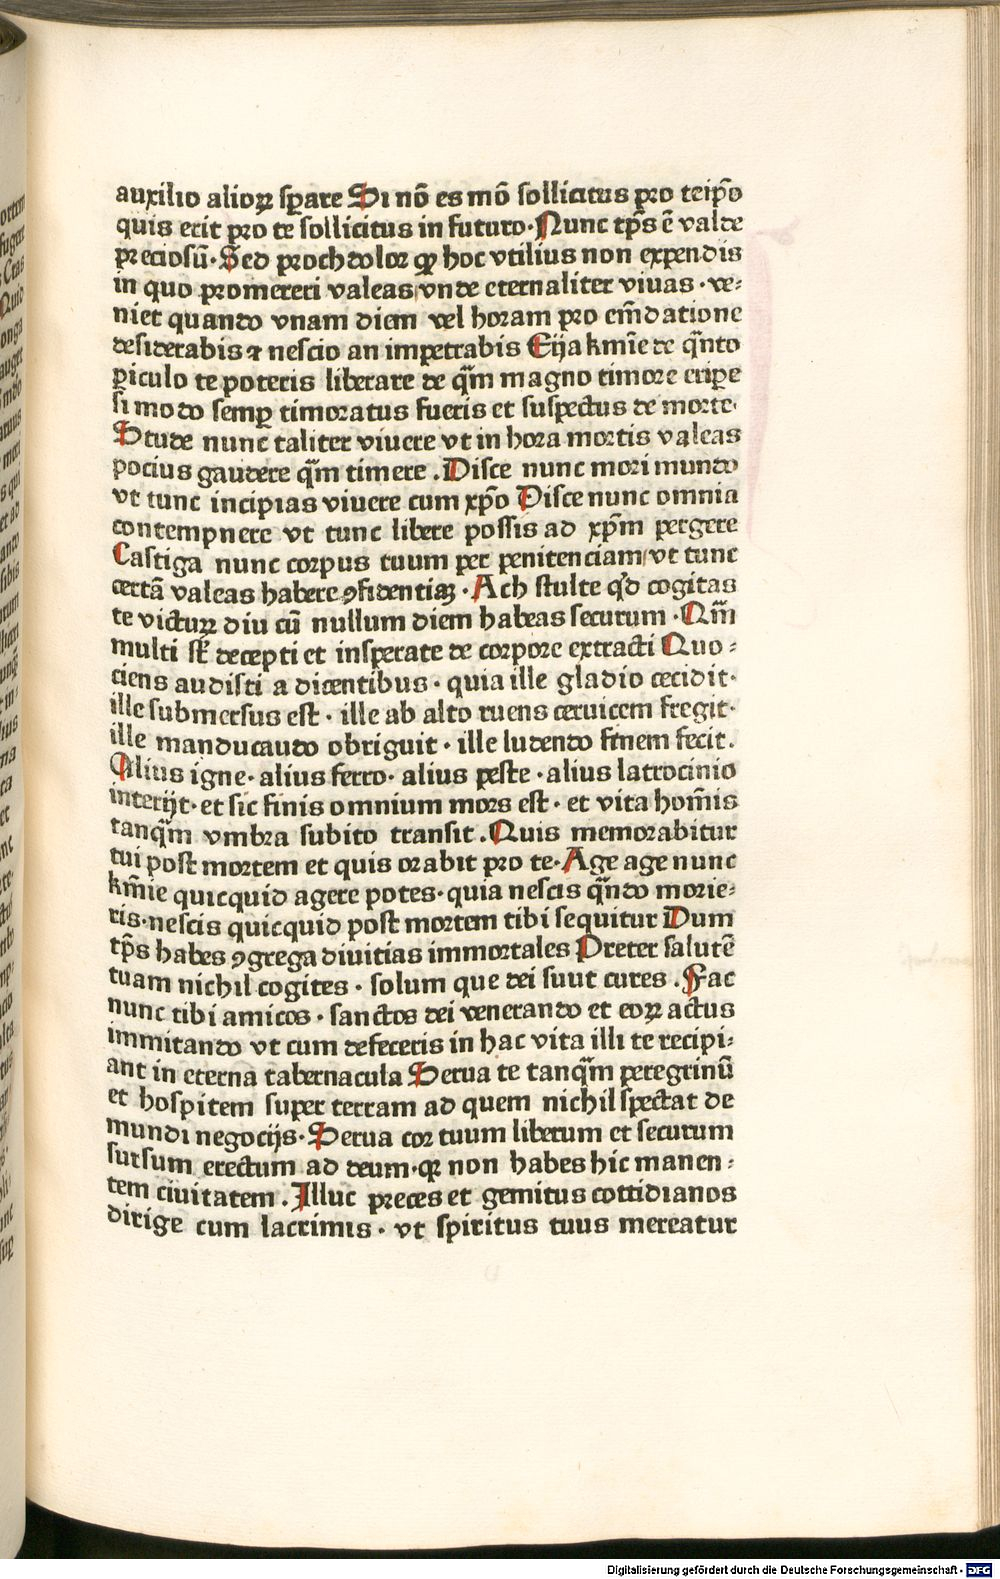 auxilio alioꝝ sꝑare Si nō es mō sollicitus ꝓ teip̄o
quis erit pro te sollicitus in futuro· Nunc tp̄s ē valde
preciosū· Sed proch dolor ꝙ hoc vtilius non expendis
in quo promereri valeas vnde eternaliter viuas · ve⸗
niet quando vnam diem vel horam pro em̄datione
desiderabis ⁊ nescio an impetrabis Eija km̄e de q̄nto
ꝑiculo te poteris liberare de qm̄ magno timore eripe
si modo semꝑ timoratus fueris et suspectus de morte·
Stude nunc taliter viuere vt in hora mortis valeas
pocius gaudere qm̄ timere . Disce nunc mori mundo
vt tunc incipias viuere cum xp̄o Disce nunc omnia
contempnere vt tunc libere possis ad xp̄m pergere
Castiga nunc corpus tuum per penitenciam vt tunc
certā valeas habere ꝯfidentiaꝫ · Ach stulte qͥd cogitas
te victuꝝ diu cū nullum diem habeas securum · Qm̄
multi sꝭ decepti et insperate de corpore extracti Quo⸗
ciens audisti a dicentibus · quia ille gladio cecidit·
ille submersus est · ille ab alto ruens ceruicem fregit·
ille manducaudo obriguit · ille ludendo finem fecit.
Alius igne · alius ferro · alius peste · alius latrocinio
interijt· et sic finis omnium mors est · et vita hom̄is
tanqm̄ vmbra subito transit . Quis memorabitur
tui post mortem et quis orabit pro te· Age age nunc
km̄ie quicquid agere potes · quia nescis qn̄do morie⸗
ris· nescis quicquid post mortem tibi sequitur Dum
tp̄s habes ꝯgrega diuitias immortales Preter salutē
tuam nichil cogites · solum que dei suut cures . Fac
nunc tibi amicos · sanctos dei venerando et eoꝝ actus
immitando vt cum defeceris in hac vita illi te recipi⸗
ant in eterna tabernacula Serua te tanqm̄ peregrinū
et hospitem super terram ad quem nichil spectat de
mundi negocijs· Serua cor tuum liberum et securum
sursum erectum ad deum· qꝛ non habes hic manen⸗
tem ciuitatem . Illuc preces et gemitus cottidianos
dirige cum lacrimis · vt spiritus tuus mereatur
Digitalisierung gefördert durch die Deutsche Forschungsgemeinschaft - DFG